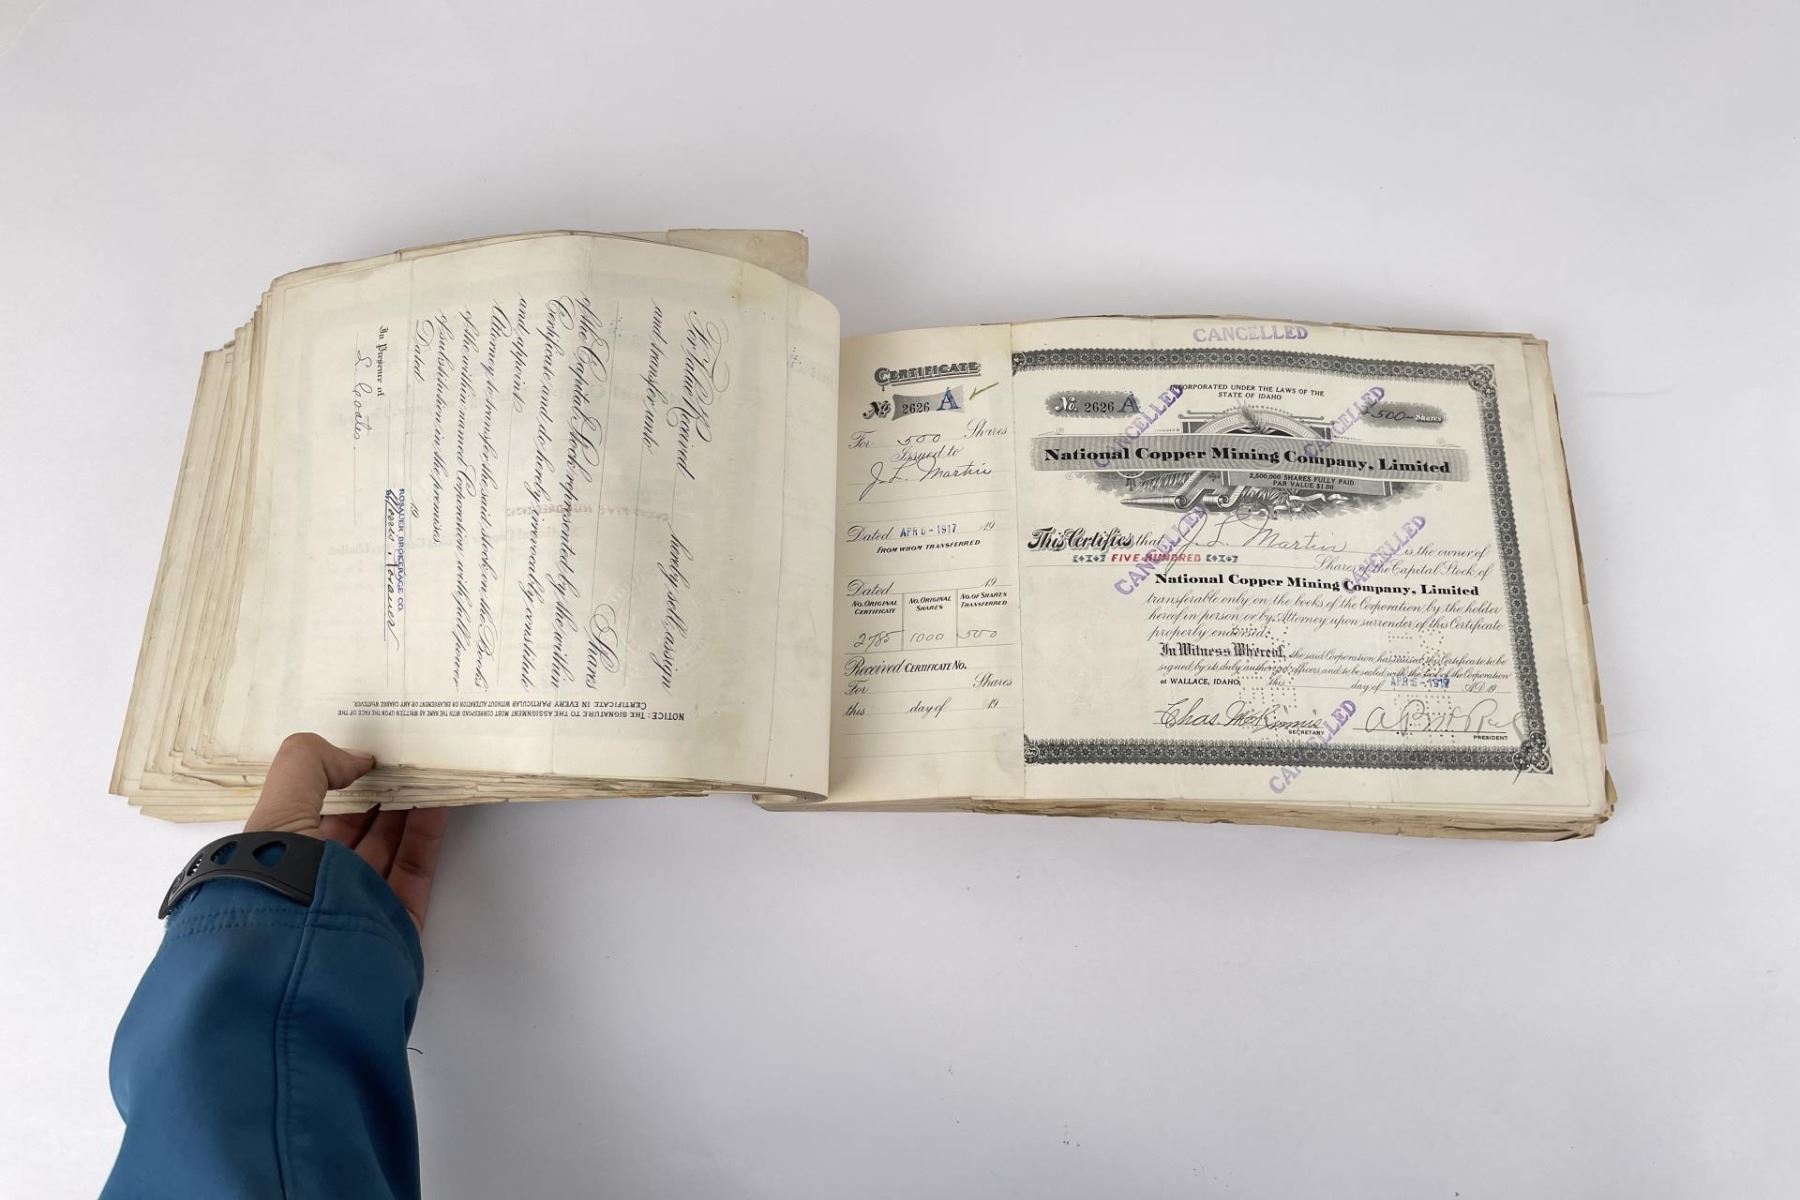 For Value Received hereby sell, assign
and transfer unto
Shares
of the Capital Stock represented by the within
Certificate and do hereby irrevocably constitute
and appoint
Attorney to transfer the said stock on the Books
of the within named Corporation with full power
of substitution in the premises.
Dated 19
In Presence of
ROSAUER BROKERAGE CO.
NOTICE: THE SIGNATURE TO THE ASSIGNMENT MUST CORRESPOND WITH THE NAME AS WRITTEN UPON THE FACE OF THE
CERTIFICATE IN EVERY PARTICULAR WITHOUT ALTERATION OR ENLARGEMENT OR ANY CHANGE WHATEVER.
CERTIFICATE
No. 2626 A
For 500 Shares
Issued to
J. L. Martin
Dated APR 6 - 1917 19
FROM WHOM TRANSFERRED
Dated 19
NO. ORIGINAL CERTIFICATE NO. ORIGINAL SHARES NO. OF SHARES TRANSFERRED
2785 1000 500
Received CERTIFICATE NO.
For Shares
this day of 19
CANCELLED
INCORPORATED UNDER THE LAWS OF THE
STATE OF IDAHO
No. 2626 A
500 Shares
CANCELLED
CANCELLED
National Copper Mining Company, Limited
2,500,000 SHARES FULLY PAID
PAR VALUE $1.00
This Certifies that J. L. Martin is the owner of
FIVE HUNDRED Shares of the Capital Stock of
CANCELLED
CANCELLED
National Copper Mining Company, Limited
transferable only on the books of the Corporation by the holder
hereof in person or by Attorney upon surrender of this Certificate
properly endorsed.
In Witness Whereof, the said Corporation has caused this Certificate to be
signed by its duly authorized officers and to be sealed with the Seal of the Corporation
at WALLACE, IDAHO, this day of APR 6 - 1917 A.D. 19
Chas. McKinnis
SECRETARY
PRESIDENT
CANCELLED